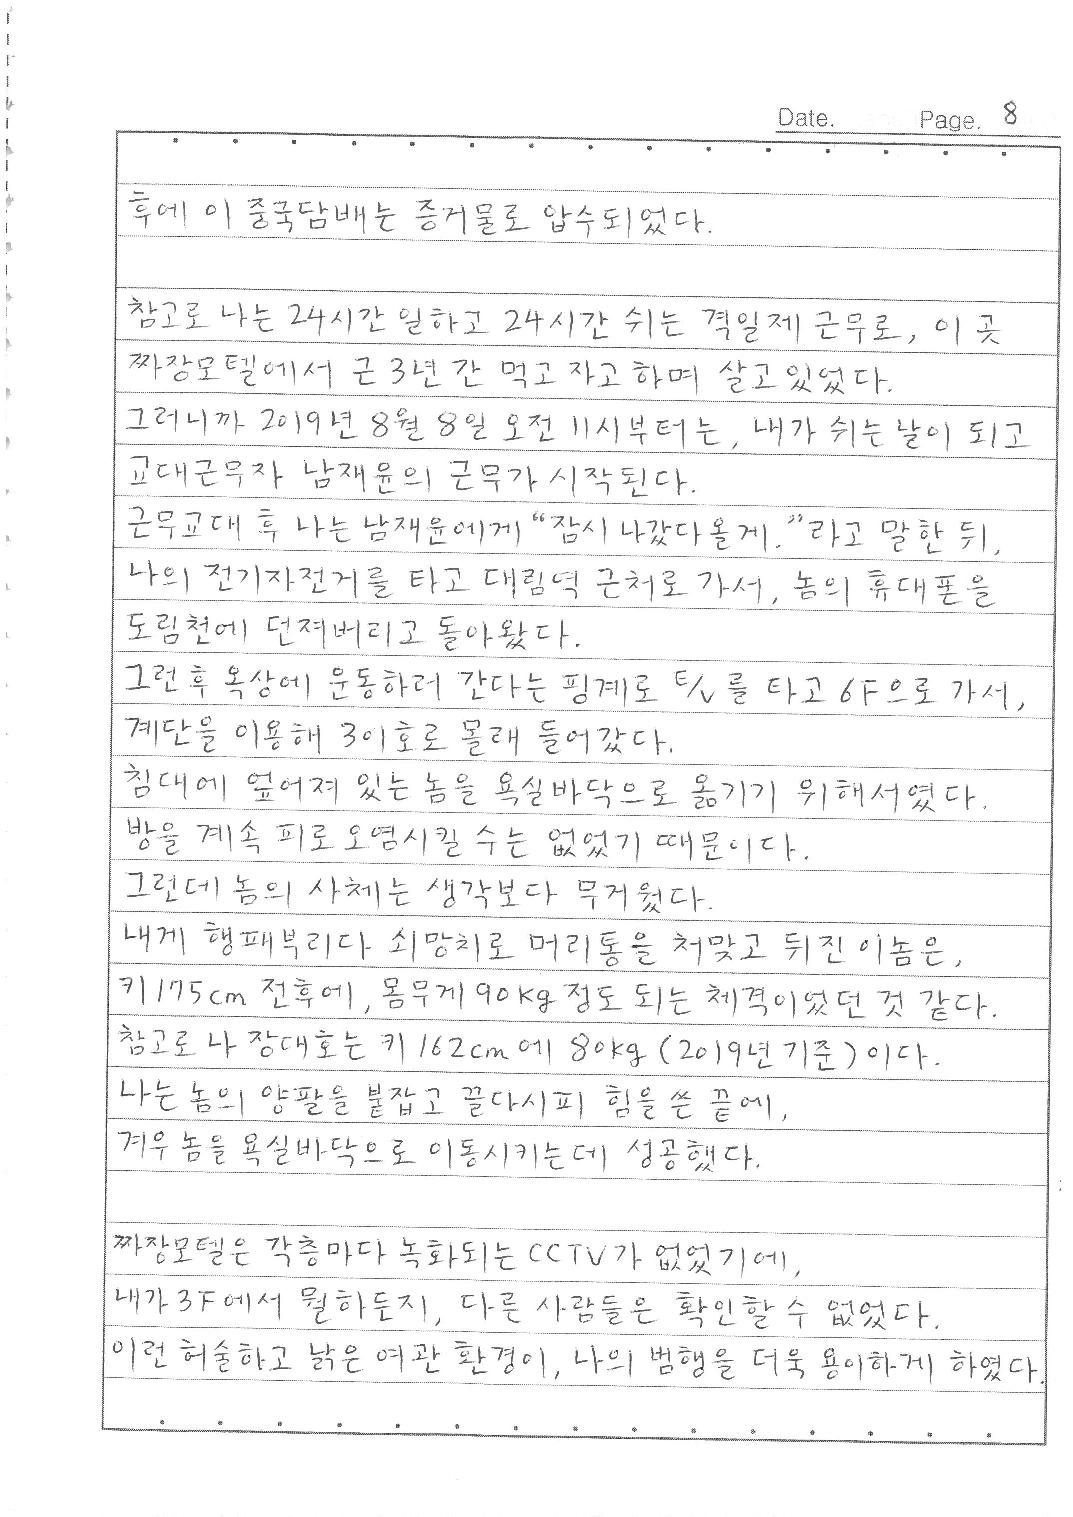 Date. Page. 8
후에 이 중국담배는 증거물로 압수되었다.
참고로 나는 24시간 일하고 24시간 쉬는 격일제 근무로, 이 곳
짜장모텔에서 근 3년 간 먹고 자고 하며 살고 있었다.
그러니까 2019년 8월 8일 오전 11시부터는, 내가 쉬는 날이 되고
교대근무자 남재윤의 근무가 시작된다.
근무교대 후 나는 남재윤에게 "잠시 나갔다 올게."라고 말한 뒤,
나의 전기자전거를 타고 대림역 근처로 가서, 놈의 휴대폰을
도림천에 던져버리고 돌아왔다.
그런 후 옥상에 운동하러 간다는 핑계로 E/V를 타고 6F으로 가서,
계단을 이용해 301호로 몰래 들어갔다.
침대에 엎어져 있는 놈을 욕실바닥으로 옮기기 위해서였다.
방을 계속 피로 오염시킬 수는 없었기 때문이다.
그런데 놈의 사체는 생각보다 무거웠다.
내게 행패부리다 쇠망치로 머리통을 처맞고 뒤진 이놈은,
키 175cm 전후에, 몸무게 90kg 정도 되는 체격이었던 것 같다.
참고로 나 장대호는 키 162cm에 80kg (2019년 기준) 이다.
나는 놈의 양팔을 붙잡고 끌다시피 힘을 쓴 끝에,
겨우 놈을 욕실바닥으로 이동시키는데 성공했다.
짜장모텔은 각층마다 녹화되는 CCTV가 없었기에,
내가 3F에서 뭘하든지, 다른 사람들은 확인할 수 없었다.
이런 허술하고 낡은 여관 환경이, 나의 범행을 더욱 용이하게 하였다.